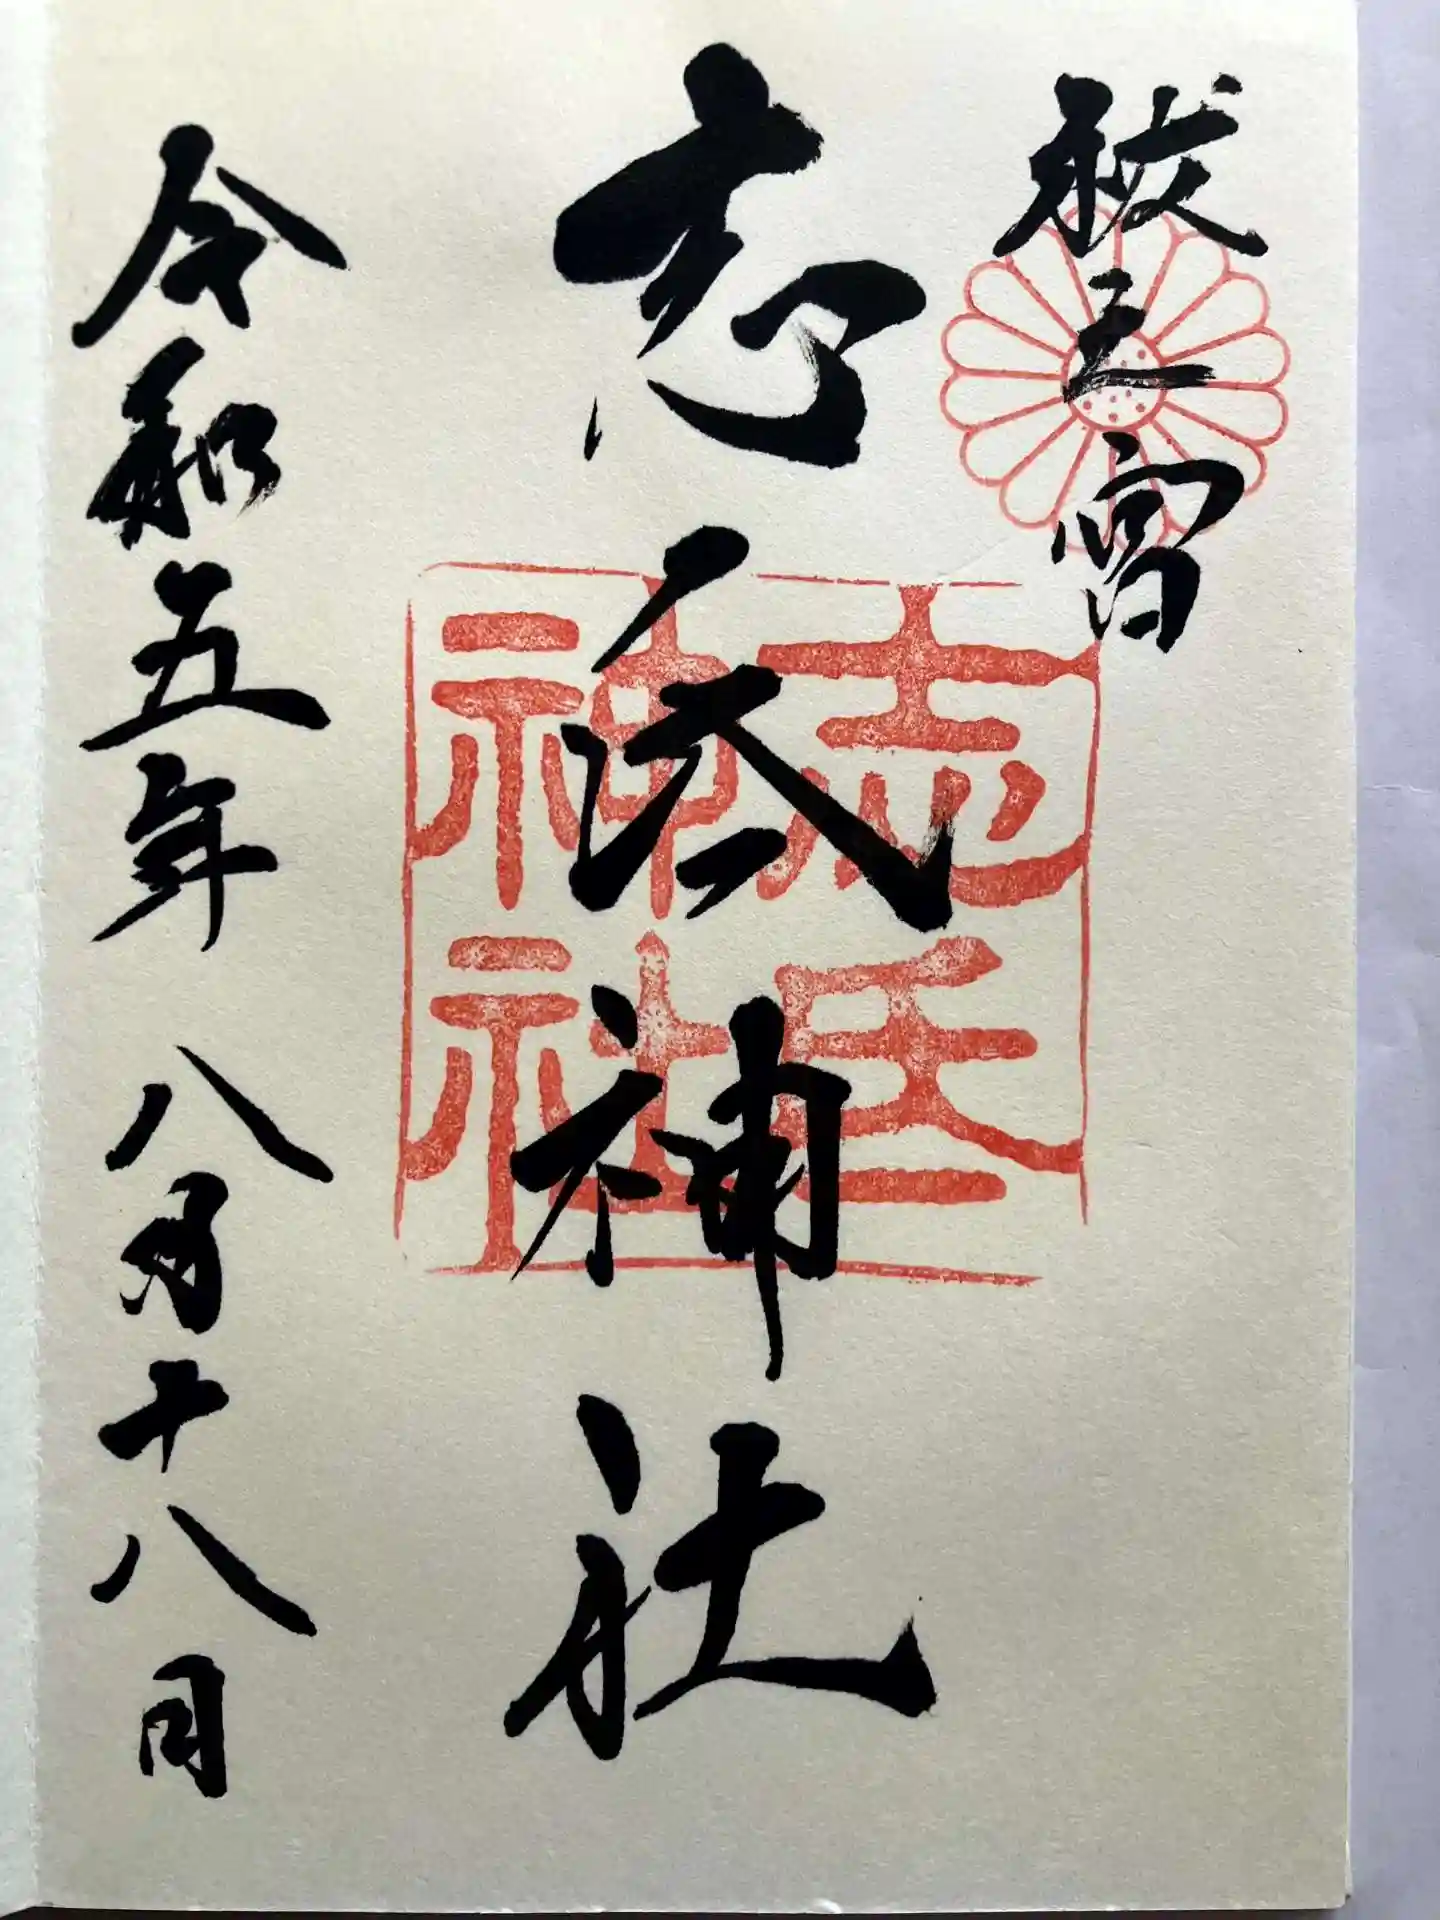 祓之宮
志氐神社
志氐
神社
令和五年 八月十八日